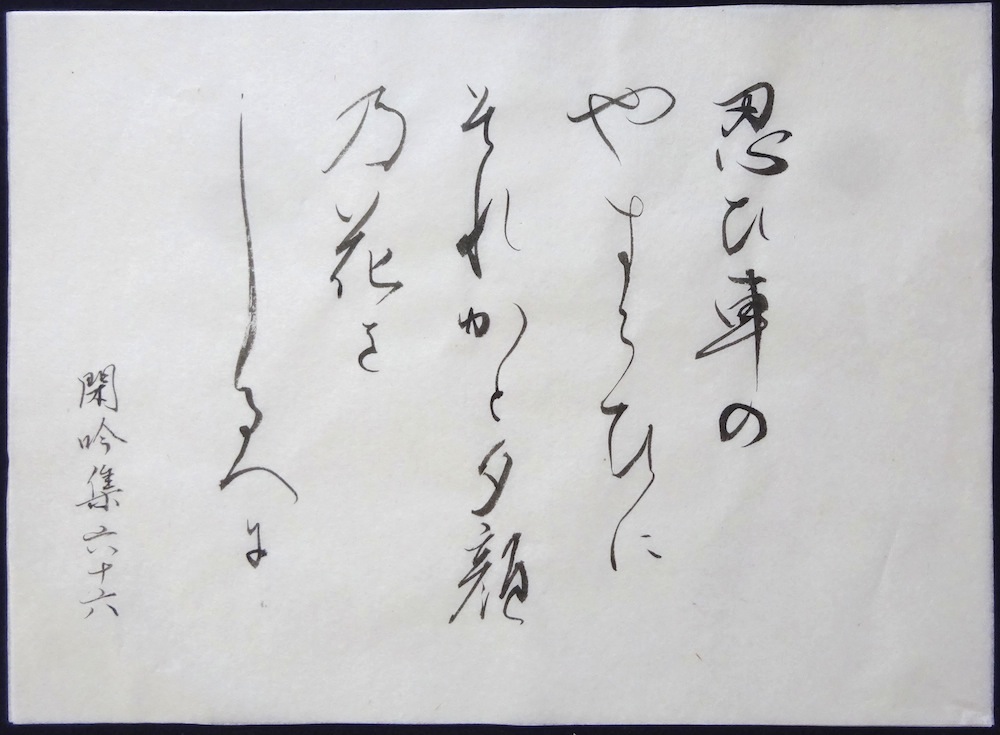 忍ひ車の
やすらひに
それかと夕顔
乃花を
しるへに
閑吟集六十六